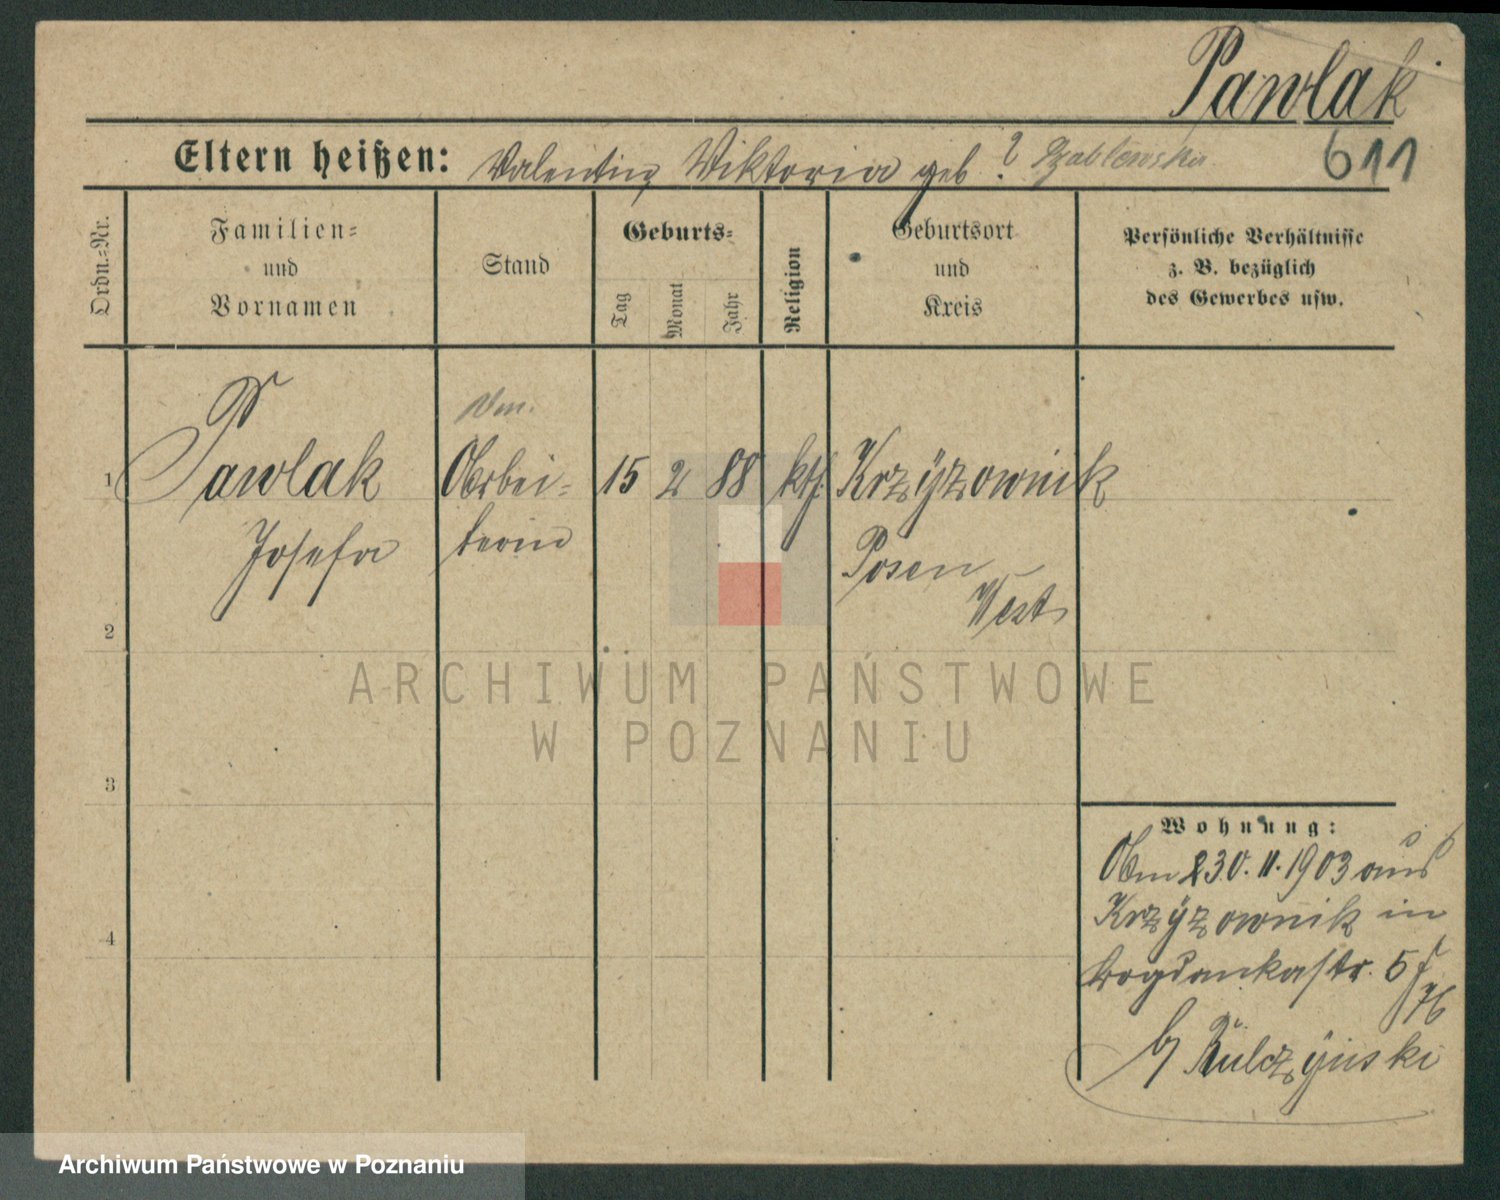 Pawlak
Eltern heißen: Valentin, Viktoria geb. ?
611
Ordn.-Nr.
Familien-
und
Vornamen
Stand
Geburts-
Tag
Monat
Jahr
Religion
Geburtsort
und
Kreis
Persönliche Verhältnisse
z. B. bezüglich
des Gewerbes usw.
1
Pawlak
Josefa
Arbei-
terin
15 2 88 kth.
Krzÿzownik
Posen
West
2
ARCHIWUM PAŃSTWOWE
W POZNANIU
3
4
Wohnung:
Am 30.11.1903 aus
Krzÿzownik in
Bogdankastr. 5
b/ Kulczÿnski
Archiwum Państwowe w Poznaniu